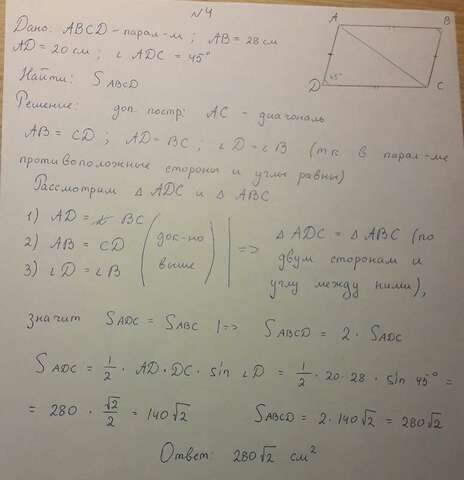 N4
Дано: ABCD - парал-м ; AB = 28 см
AD = 20 см ; ∠ ADC = 45°
Найти: S ABCD
Решение: доп. постр: AC - диагональ
AB = CD ; AD = BC ; ∠D = ∠B (т.к. в парал-ме
противоположные стороны и углы равны)
Рассмотрим △ ADC и △ ABC
1) AD = BC
2) AB = CD
3) ∠D = ∠B
(док-но
выше)
=> △ ADC = △ ABC (по
двум сторонам и
углу между ними),
значит S ADC = S ABC | => S ABCD = 2 · S ADC
S ADC = 1/2 · AD · DC · sin ∠D = 1/2 · 20 · 28 · sin 45° =
= 280 · √2/2 = 140√2 S ABCD = 2 · 140√2 = 280√2
Ответ: 280√2 см²
A
B
D
45°
C